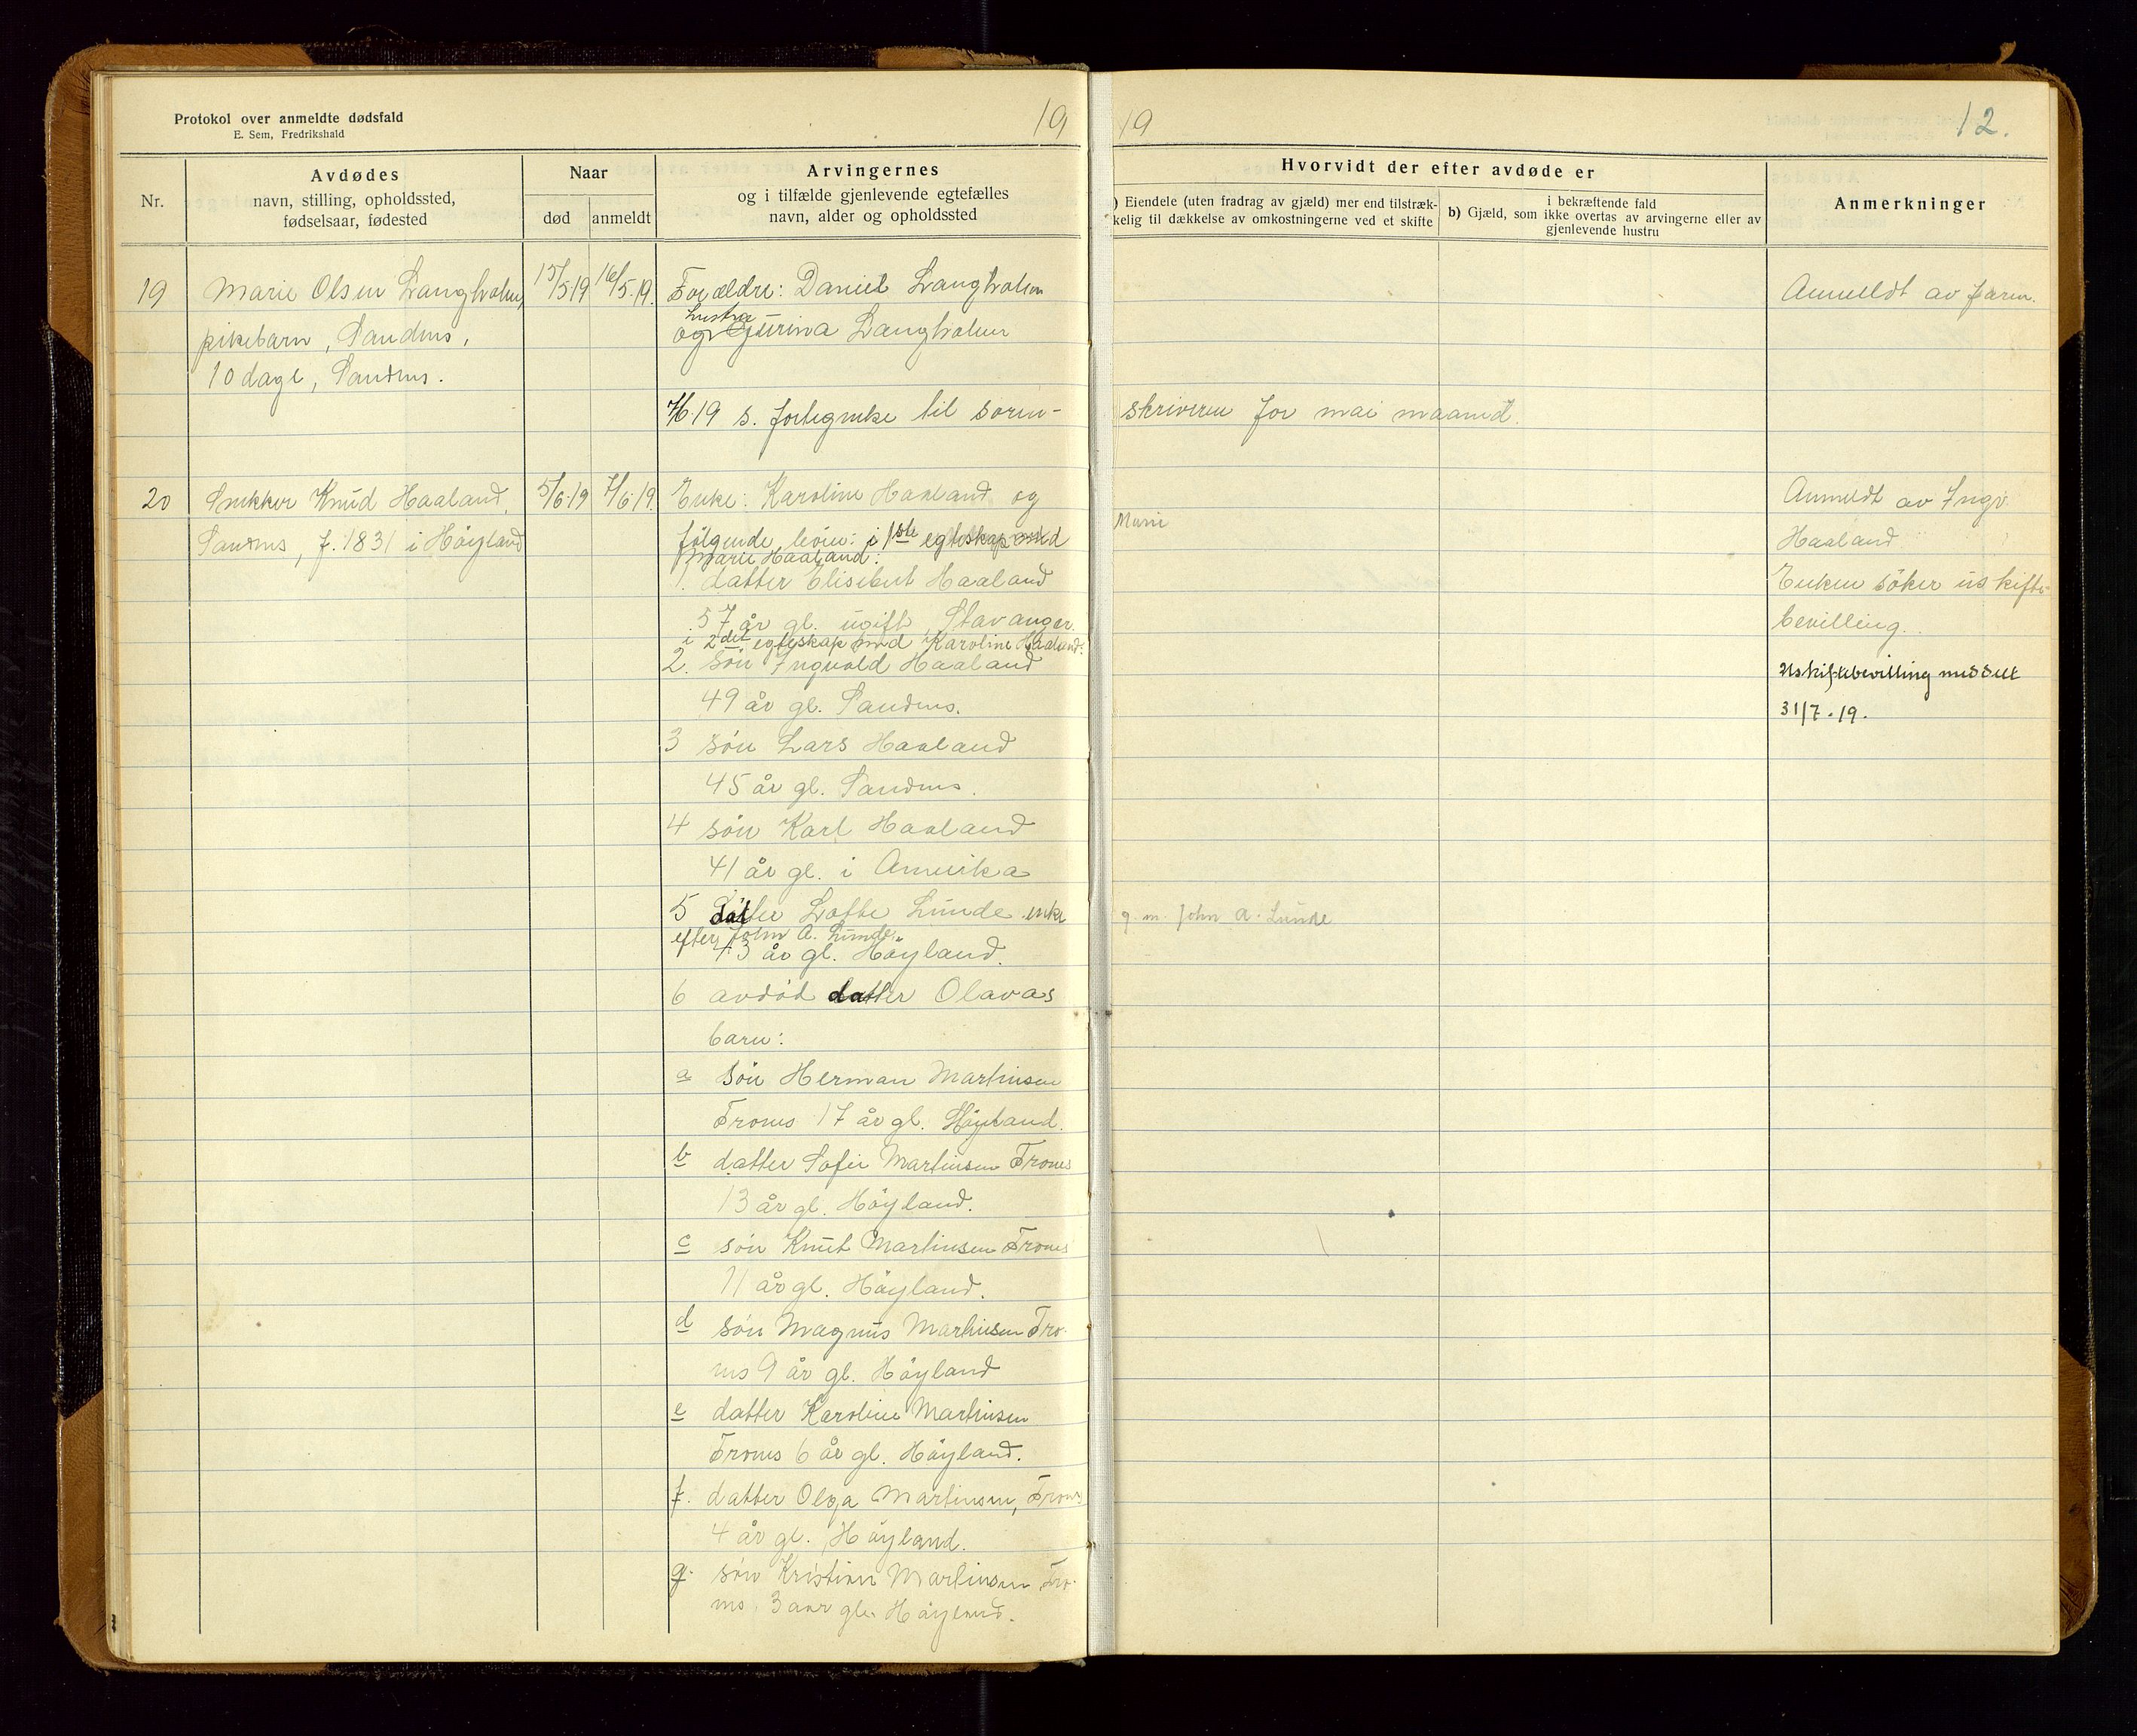 Protokol over anmeldte dødsfald
E. Sem, Fredrikshald
19
19
12.
Nr.
Avdødes
navn, stilling, opholdssted,
fødselsaar, fødested
Naar
død
anmeldt
Arvingernes
og i tilfælde gjenlevende egtefælles
navn, alder og opholdssted
Hvorvidt der efter avdøde er
) Eiendele (uten fradrag av gjæld) mer end tilstræk-
kelig til dækkelse av omkostningerne ved et skifte
i bekræftende fald
b) Gjæld, som ikke overtas av arvingerne eller av
gjenlevende hustru
Anmerkninger
19
Marie Olsen Langholen,
pikebarn, Sandnes,
10 dage, Sandnes.
15/5 19
16/5. 19.
Forældre: Daniel Langholen
hustru
og Gurina Langholen
Anmeldt av faren.
7/6. 19 s. fortegnelse til soren-
skriveren for mai maaned.
20
Snekker Knud Haaland,
Sandnes, f. 1831 i Höyland
5/6.19
7/6.19.
Enke: Karoline Haaland og
følgende börn: i 1ste egteskap med
Marie
Marie Haaland:
1. datter Elisebet Haaland
57 år gl. ugift, Stavanger.
i 2det egteskap med Karoline Haaland:
2. sön Ingvald Haaland
49 år gl. Sandnes.
3 sön Lars Haaland
45 år gl. Sandnes.
4 sön Karl Haaland
41 år gl. i Amerika
5 datter Lotte Lunde enke
g. m. John A. Lunde
efter John A. Lunde
43 år gl. Höyland.
6 avdöd datter Olavas
barn:
a sön Herman Martinsen
Trones 17 år gl. Höyland.
b datter Sofie Martinsen Trones
13 år gl. Höyland.
c sön Knut Martinsen Trones
11 år gl. Höyland.
d sön Magnus Martinsen Tro-
nes 9 år gl. Höyland
e datter Karoline Martinsen
Trones 6 år gl. Höyland.
f. datter Olga Martinsen, Trones
4 år gl. Höyland.
g. sön Kristian Martinsen Tro-
nes, 3 aar gl. Höyland.
Anmeldt av Ingv.
Haaland
Enken söker uskifte-
bevilling.
Uskiftebevilling meddelt
31/7.19.